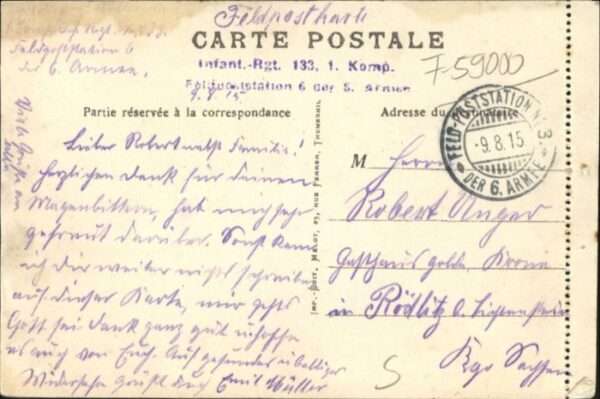 Feldpostkarte
CARTE POSTALE
7-59000
Infant.-Rgt. 133, 1. Komp.
Feldpoststation 6 der 6. Armee
9.8.15
Feldpoststation 6
der 6. Armee.
Partie réservée à la correspondance
Adresse du
FELD-POSTSTATION Nr. 3
-9.8.15
DER 6. ARMEE
Lieber Robert nebst Familie!
herzlichen Dank für deinen
Magenbittern, hat mich sehr
gefreut darüber. Sonst kann
ich dir weiter nicht schreiben
auf dieser Karte, mir gehts
Gott sei Dank ganz gut u. hoffe
es auch von Euch. Auf gesundes
Wiedersehn grüßt Euch Emil Müller
Viele Grüße an
M Herrn
Robert Unger
Gasthaus goldn. Krone
in Rödlitz b. Lichtenstein
Kgr. Sachsen
5